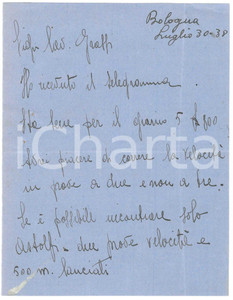 Bologna
Luglio 30-38
Sig. Cav. Graffi
Ho ricevuto il telegramma.
Sta bene per il giorno 5 £ 800
Avrei piacere di correre la velocità
in prove a due e non a tre.
Se è possibile incontrare solo
Astolfi - due prove velocità e
500 m. lanciati
iCharta